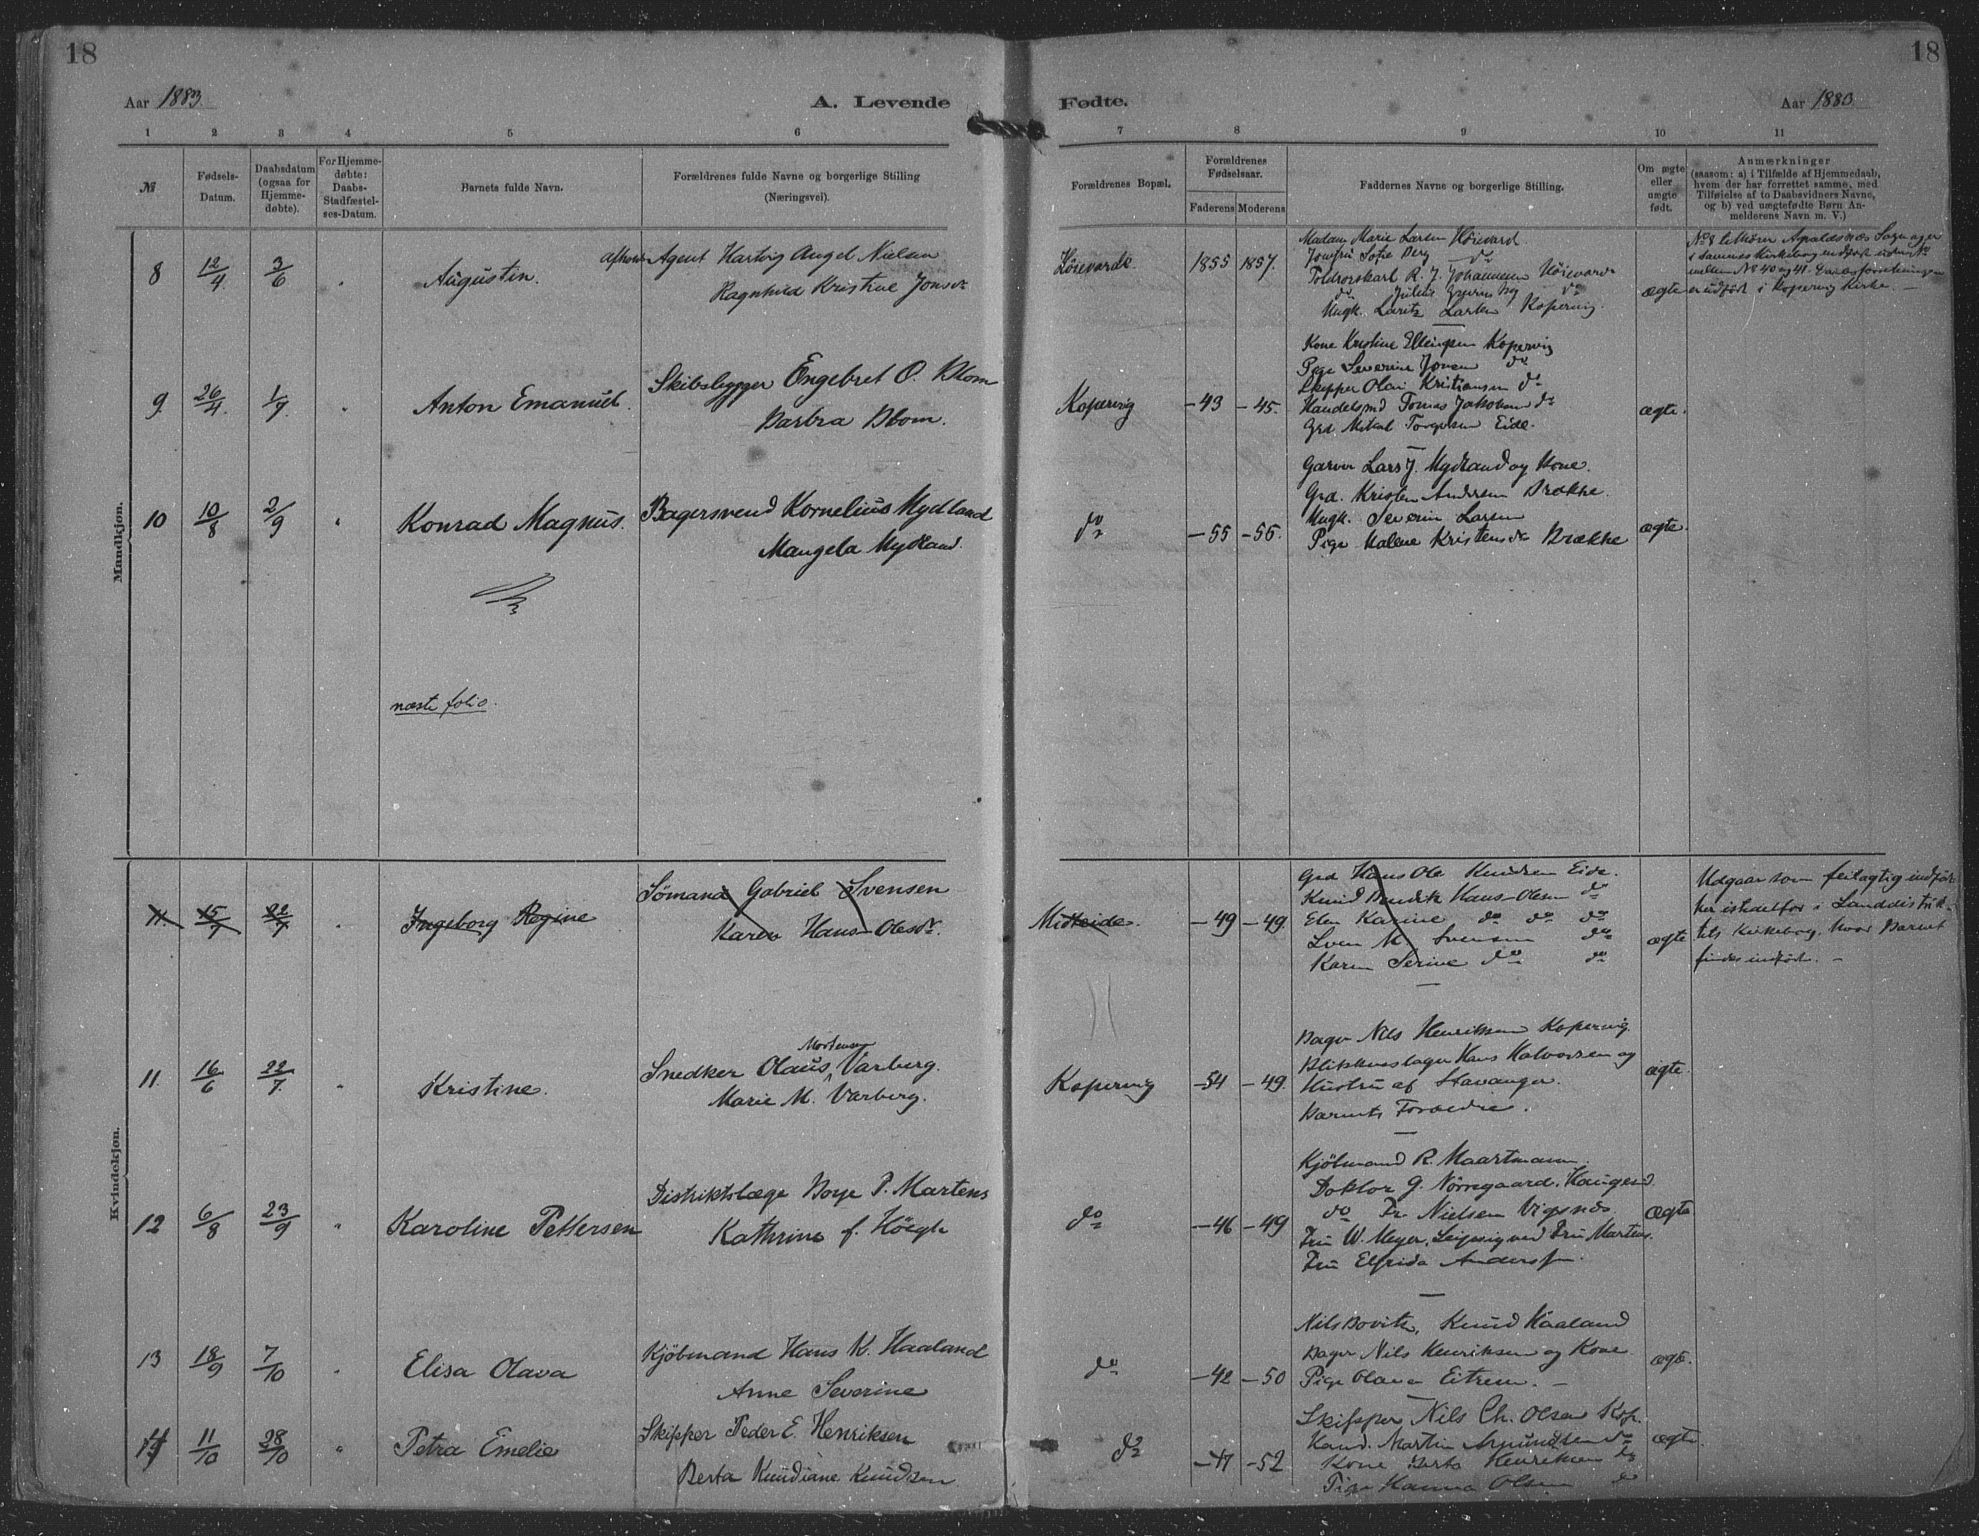 18
18
Aar 1883.
A. Levende
Fødte.
Aar 1883.
1 2 3 4 5 6 7 8 9 10 11
№
Fødsels-
Datum.
Daabsdatum
(ogsaa for
Hjemme-
døbte).
For Hjemme-
døbte:
Daabs-
Stadfæstel-
ses-Datum.
Barnets fulde Navn.
Forældrenes fulde Navne og borgerlige Stilling
(Næringsvei).
Forældrenes Bopæl.
Forældrenes
Fødselsaar.
Faderens Moderens
Faddernes Navne og borgerlige Stilling.
Om ægte
eller
uægte
født.
Anmærkninger
(saasom: a) i Tilfælde af Hjemmedaab,
hvem der har forrettet samme, med
Tilføielse af to Daabsvidners Navne,
og b) ved uægtefødte Børn An-
melderens Navn m. V.)
Mandkjøn.
8 12/4 3/6 " Augustin.
Agent Hartvig Angel Nielsen
Ragnhild Kristine Jonsdr
1855 1857.
Madam Marie Larsen Høievard
Jomfru Sofie Berg do
Toldroerskarl R. J. Johannesen Høievarde
Ungk. Larits Larsen Kopervig.
ægte
i Kopervig Kirke. —
9 26/4 1/9 " Anton Emanuel.
Skibsbygger Engebret O. Blom
Barbra Blom.
Kopervig -43 -45.
Kone Kristine Ellingsen Kopervig
Pige Severine Jonsen do
Skipper Olai Kristiansen do
Handelsmd Tomas Jakobsen do
Grd Mikal Torgersen Eide.
ægte.
10 10/8 2/9 " Konrad Magnus.
Bagersvend Kornelius Mydland
Mangela Mydland.
do -55 -56.
Garver Lars J. Mydland og Kone.
Grd. Kristen Andersen Brække.
Ungk. Severin Larsen
Pige Malene Kristensdr Brække
ægte.
næste folio.
Kvindekjøn.
11. 15/7 22/7 " Ingeborg Regine
Sømand Gabriel Svensen
Karen Hans-Olesdr.
Midteide. -49 -49.
Grd Hans Ole Knudsen Eide.
Knud Bendik Hans-Olsen do
Elen Karine do do do
Sven M. Svensen do
Karen Serine do do
ægte
Udgaar som feilagtig indført
her istedetfor i Landdistrik-
tets Kirkebog, hvor Barnet
findes indført. —
11. 16/6 22/7 " Kristine.
Mortensen
Snedker Olaus Varberg.
Marie M. Varberg.
Kopervig -54 -49.
Bager Nils Henriksen Kopervig.
Blikkenslager Hans Halvorsen og
Hustru af Stavanger.
Barnets Forældre.
ægte.
12 6/8 23/9 " Karoline Pettersen
Distriktslæge Boye P. Martens
Kathrine f. Høegh
do -46 -49
Kjøbmand R. Maartmann.
Doktor G. Nørregaard, Haugesd.
do Fr Nielsen Vigsnæs.
Fru W. Meyer, Leipsig ved Fru Martens.
Fru Elfrida Anderssen.
ægte
13 18/9 7/10 " Elisa Olava
Kjøbmand Hans K. Haaland
Anne Severine
do -42 -50
Knud Haaland
Bager Nils Henriksen og Kone
Pige Olava Eitrem. —
ægte.
14 11/10 28/10 " Petra Emelie
Skipper Peder E. Henriksen
Berta Knudiane Knudsen
do -47 -52
Skipper Nils Ch. Olsen Kop.
Kand. Martin Amundsen do
Kone Berta Henriksen do
Pige Hanna Olsen do
ægte.